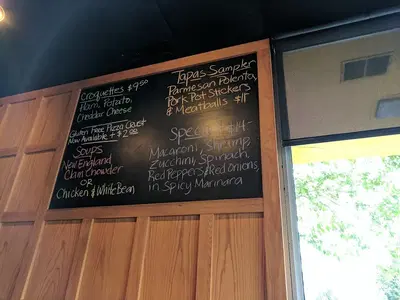 Croquettes $9.50
Ham, Potato,
Cheddar Cheese
Gluten Free Pizza Crust
Now Available + $2.00
Soups
New England
Clam Chowder
OR
Chicken & White Bean
Tapas Sampler
Parmesan Polenta,
Pork Pot Stickers
& Meatballs $11
Special $14-
Macaroni, Shrimp,
Zucchini, Spinach,
Red Peppers & Red Onions,
in Spicy Marinara